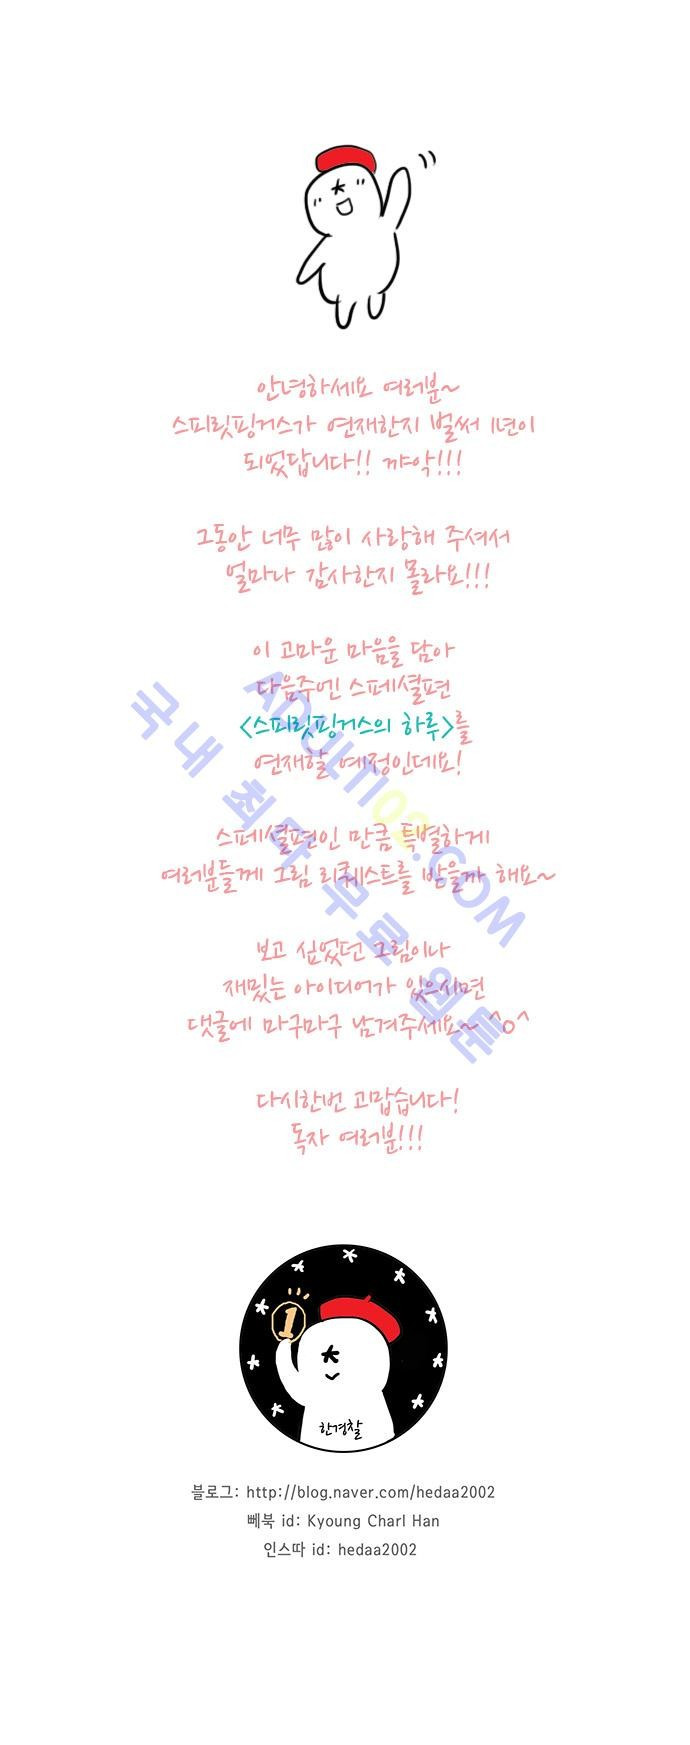 안녕하세요 여러분~
스피릿핑거스가 연재한지 벌써 1년이
되었답니다!! 꺄악!!!
그동안 너무 많이 사랑해 주셔서
얼마나 감사한지 몰라요!!!
이 고마운 마음을 담아
다음주엔 스페셜편
<스피릿핑거스의 하루>를
연재할 예정인데요!
스페셜편인 만큼 특별하게
여러분들께 그림 리퀘스트를 받을까 해요~
보고 싶었던 그림이나
재밌는 아이디어가 있으시면
댓글에 마구마구 남겨주세요~ ^o^
다시한번 고맙습니다!
독자 여러분!!!
ADULTI02.COM
국내 최다 무료 웹툰
1
한경찰
블로그: http://blog.naver.com/hedaa2002
뻬북 id: Kyoung Charl Han
인스따 id: hedaa2002